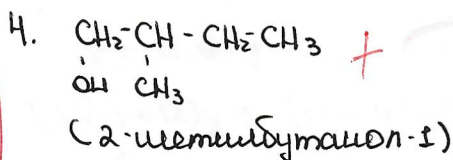 4. CH₂-CH-CH₂-CH₃ +
OH CH₃
(2-метилбутанол-1)